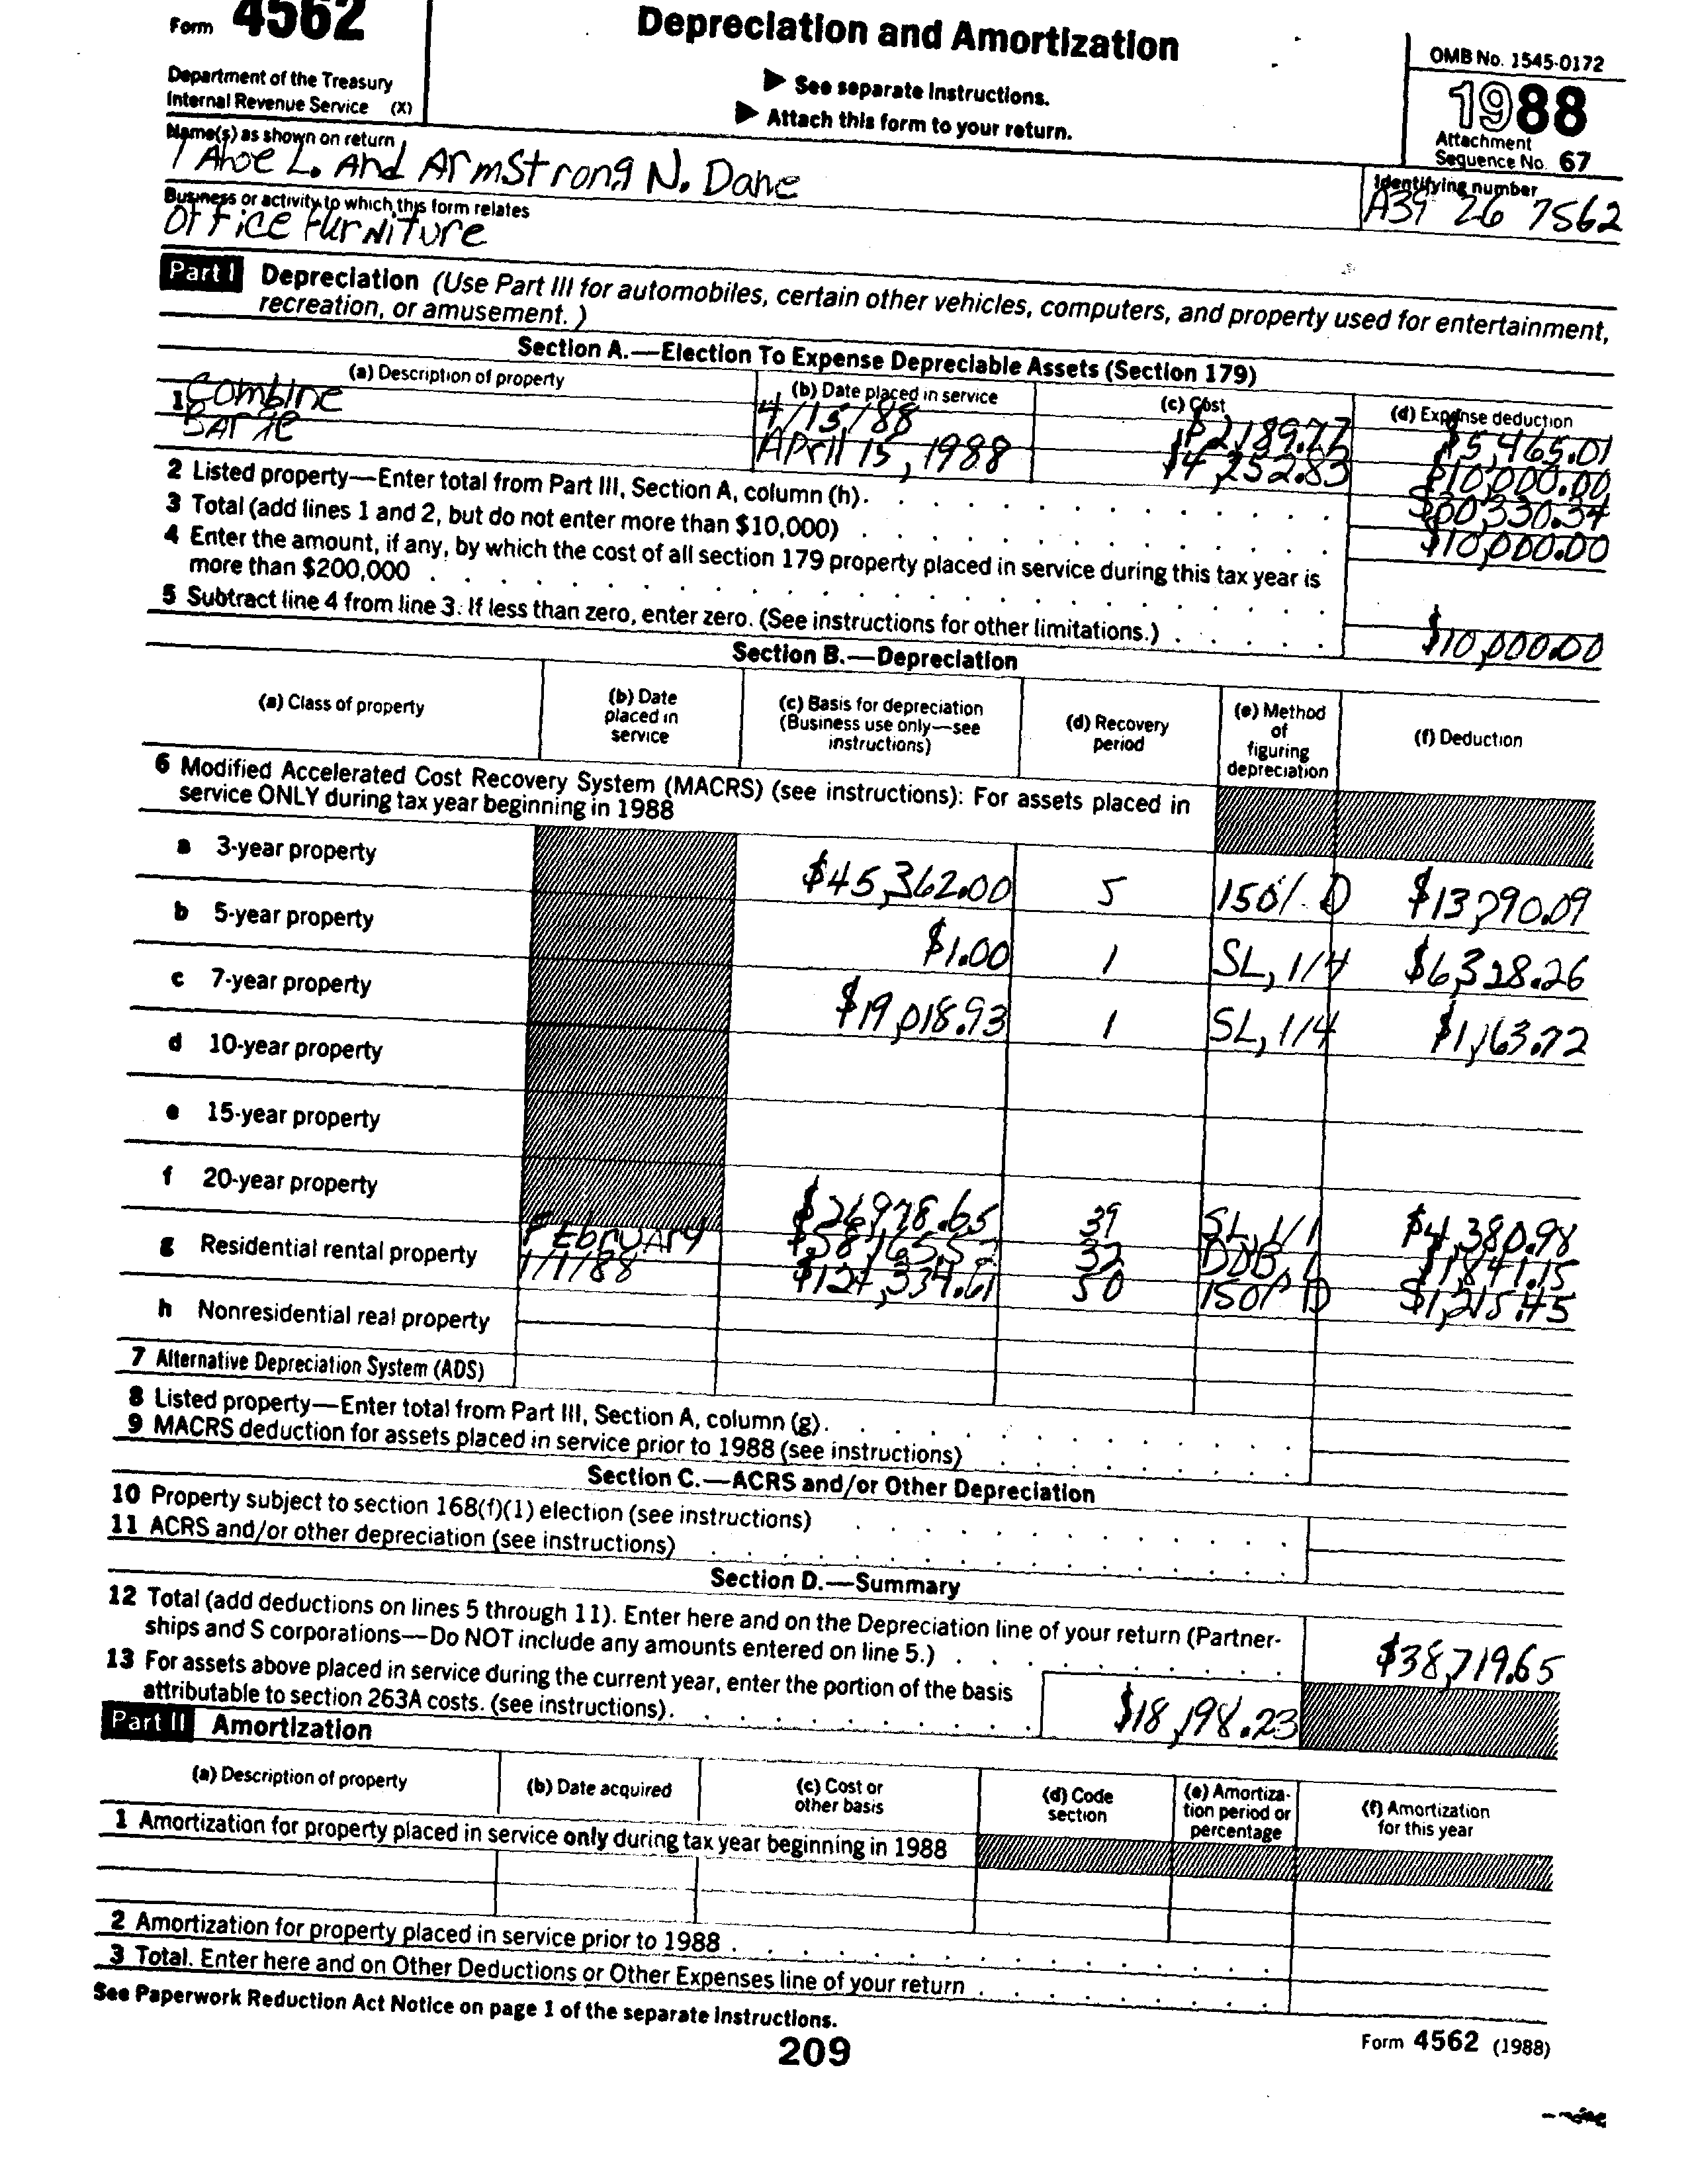 Form 4562
Department of the Treasury
Internal Revenue Service (X)
Depreciation and Amortization
▶ See separate Instructions.
▶ Attach this form to your return.
OMB No. 1545-0172
1988
Attachment
Sequence No. 67
Name(s) as shown on return
TAhoe L. And ArmStrong N. Dane
Identifying number
A39 26 7562
Business or activity to which this form relates
OfFiCE FurNiTure
Part I Depreciation (Use Part III for automobiles, certain other vehicles, computers, and property used for entertainment,
recreation, or amusement.)
Section A.—Election To Expense Depreciable Assets (Section 179)
(a) Description of property (b) Date placed in service (c) Cost (d) Expense deduction
1 Combine 4/15/88 $2,189.77 $5,465.01
BArge April 15, 1988 $4,252.83 $10,000.00
2 Listed property—Enter total from Part III, Section A, column (h). $30,330.34
3 Total (add lines 1 and 2, but do not enter more than $10,000) $10,000.00
4 Enter the amount, if any, by which the cost of all section 179 property placed in service during this tax year is
more than $200,000
5 Subtract line 4 from line 3. If less than zero, enter zero. (See instructions for other limitations.) $10,000.00
Section B.—Depreciation
(a) Class of property (b) Date placed in service (c) Basis for depreciation (Business use only—see instructions) (d) Recovery period (e) Method of figuring depreciation (f) Deduction
6 Modified Accelerated Cost Recovery System (MACRS) (see instructions): For assets placed in
service ONLY during tax year beginning in 1988
a 3-year property $45,362.00 5 150/. D $13,790.09
b 5-year property $1.00 1 SL, 1/4 $6,328.26
c 7-year property $19,018.93 1 SL, 1/4 $1,163.72
d 10-year property
e 15-year property
f 20-year property
$26,978.65 39 SL, 1/1 $4,380.98
g Residential rental property FEbruAry 32 DDB, 1 $1,841.15
1/1/88 $127,334.61 50 150/ D $1,215.45
h Nonresidential real property
7 Alternative Depreciation System (ADS)
8 Listed property—Enter total from Part III, Section A, column (g).
9 MACRS deduction for assets placed in service prior to 1988 (see instructions)
Section C.—ACRS and/or Other Depreciation
10 Property subject to section 168(f)(1) election (see instructions)
11 ACRS and/or other depreciation (see instructions)
Section D.—Summary
12 Total (add deductions on lines 5 through 11). Enter here and on the Depreciation line of your return (Partner-
ships and S corporations—Do NOT include any amounts entered on line 5.) $38,719.65
13 For assets above placed in service during the current year, enter the portion of the basis
attributable to section 263A costs. (see instructions). $18,198.23
Part II Amortization
(a) Description of property (b) Date acquired (c) Cost or other basis (d) Code section (e) Amortiza-tion period or percentage (f) Amortization for this year
1 Amortization for property placed in service only during tax year beginning in 1988
2 Amortization for property placed in service prior to 1988
3 Total. Enter here and on Other Deductions or Other Expenses line of your return
See Paperwork Reduction Act Notice on page 1 of the separate Instructions.
209
Form 4562 (1988)